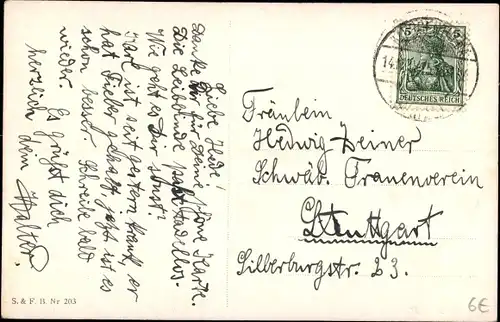 Liebe Hede!
Danke Dir für Deine schöne Karte.
Die Leibbinde passt tadellos.
Wie geht es Dir sonst?
Karl ist seit gestern krank, er
hat Fieber gehabt jetzt ist es
schon besser. Schreibe bald
wieder. Es grüßt dich
herzlich dein Walter.
5 5
DEUTSCHES REICH
14.
Fräulein
Hedwig Zeiner
Schwäb. Frauenverein
Stuttgart
Silberburgstr. 23.
S. & F. B. Nr 203
6€